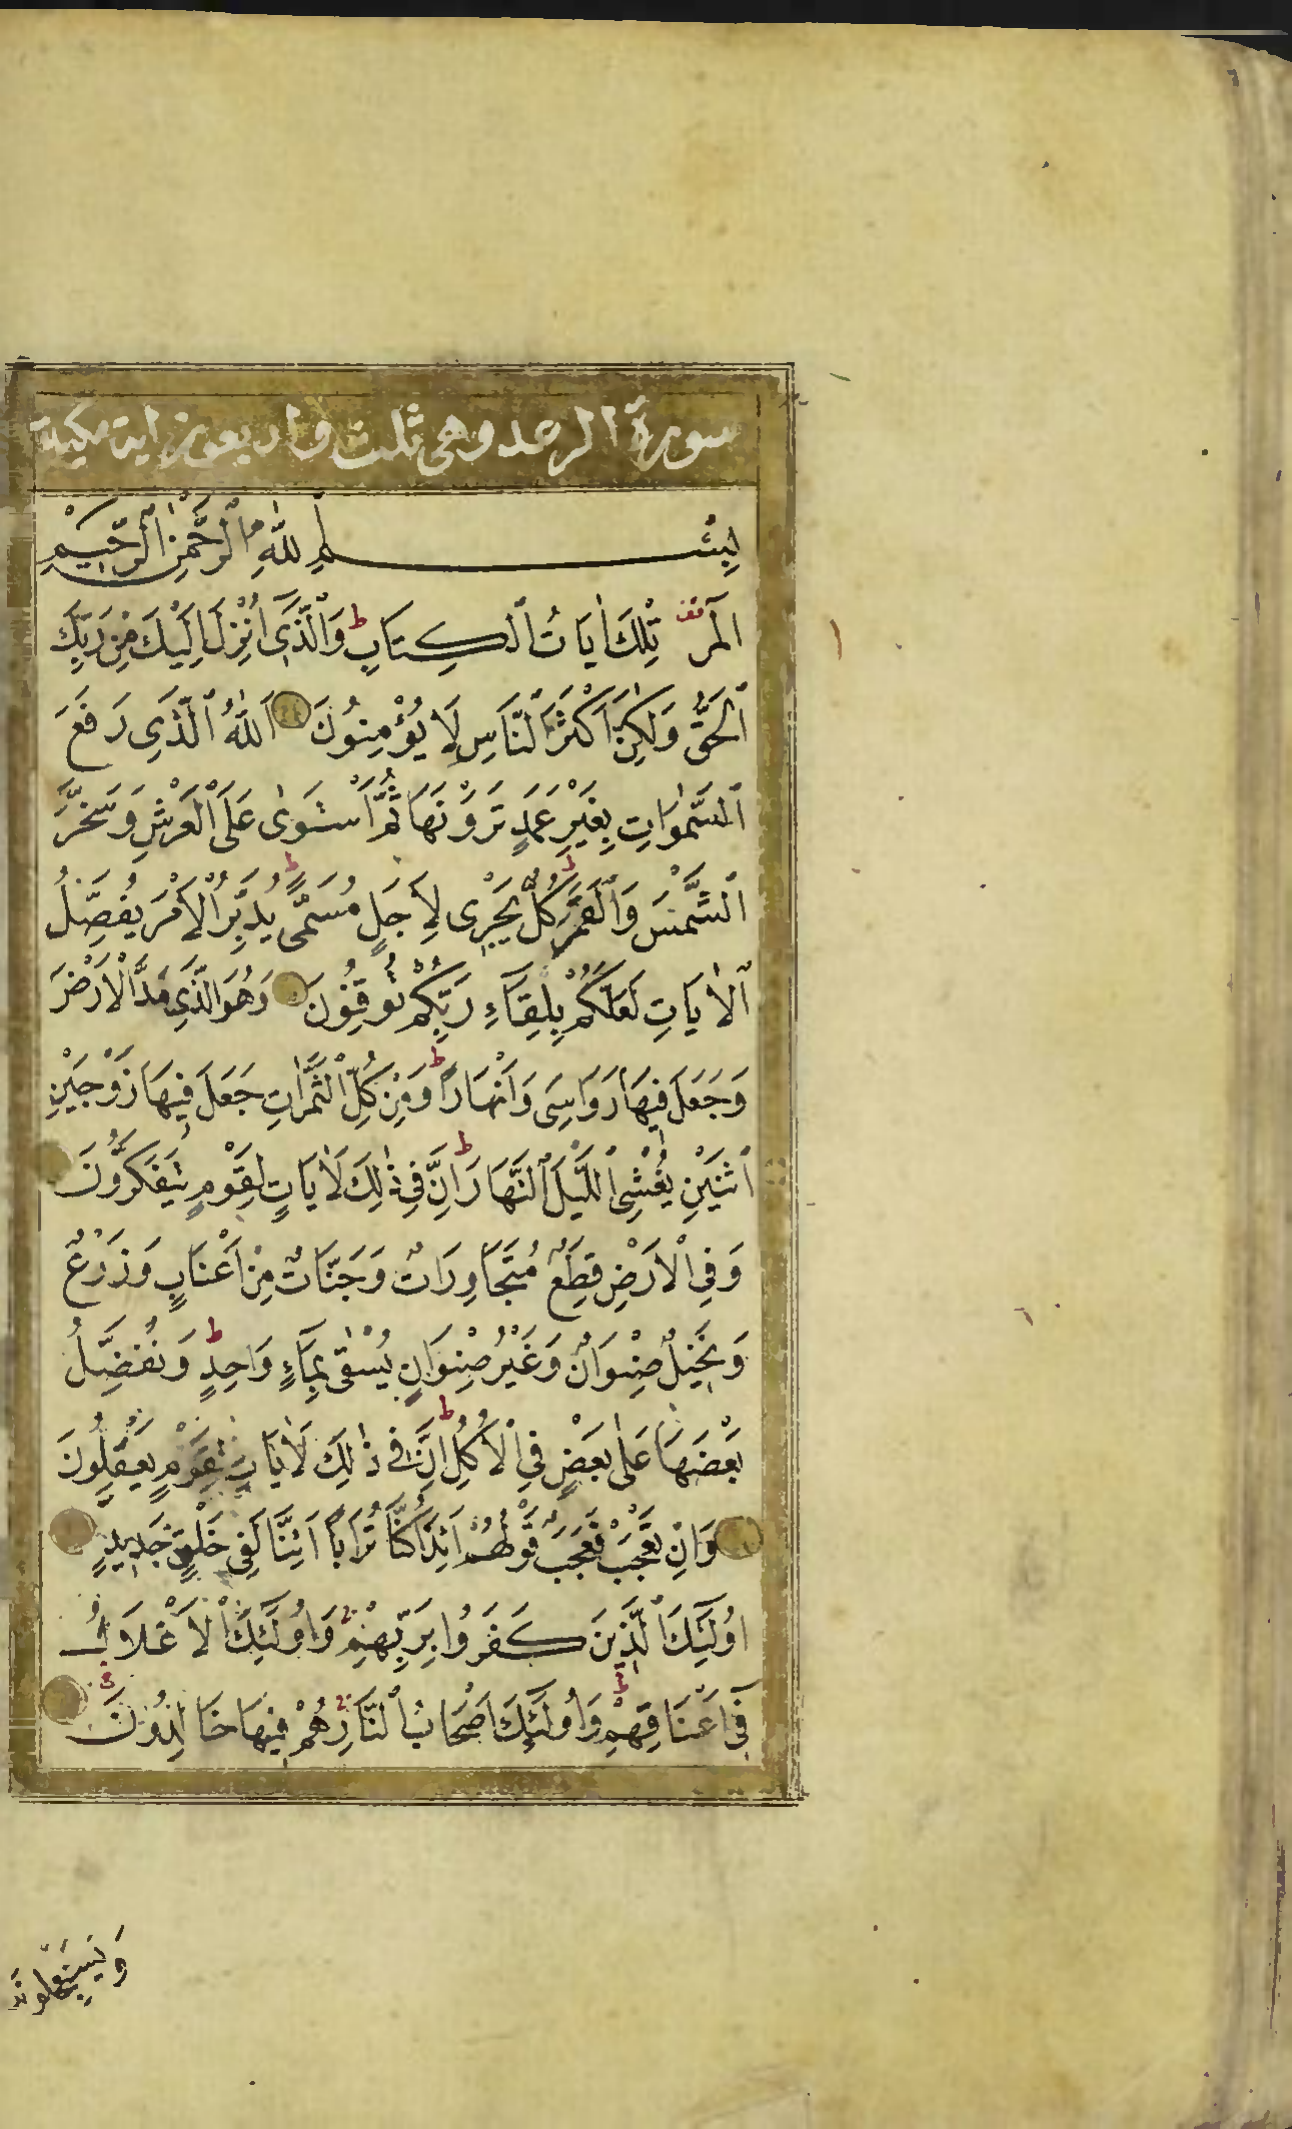 سورة الرعد وهى ثلث واربعون اية مكية
بِسْمِ اللهِ الرَّحْمٰنِ الرَّحِيمِ
الٓمٓرٰ تِلْكَ اٰيَاتُ ٱلْكِتَابِ ط وَٱلَّذٓى اُنْزِلَ اِلَيْكَ مِنْ رَبِّكَ
ٱلْحَقُّ وَلٰكِنَّ اَكْثَرَ ٱلنَّاسِ لَا يُؤْمِنُونَ اَللّٰهُ ٱلَّذٓى رَفَعَ
ٱلسَّمٰوَاتِ بِغَيْرِ عَمَدٍ تَرَوْنَهَا ثُمَّ ٱسْتَوٰى عَلَى ٱلْعَرْشِ وَسَخَّرَ
ٱلشَّمْسَ وَٱلْقَمَرَ ط كُلٌّ يَجْرٓى لِاَجَلٍ مُسَمًّى ط يُدَبِّرُ ٱلْاَمْرَ يُفَصِّلُ
ٱلْاٰيَاتِ لَعَلَّكُمْ بِلِقَآءِ رَبِّكُمْ تُوقِنُونَ وَهُوَ ٱلَّذِى مَدَّ ٱلْاَرْضَ
وَجَعَلَ فِيهَا رَوَاسِىَ وَاَنْهَارًا ط وَمِنْ كُلِّ ٱلثَّمَرَاتِ جَعَلَ فِيهَا زَوْجَيْنِ
ٱثْنَيْنِ يُغْشِى ٱللَّيْلَ ٱلنَّهَارَ ط اِنَّ فِى ذٰلِكَ لَاٰيَاتٍ لِقَوْمٍ يَتَفَكَّرُونَ
وَفِى ٱلْاَرْضِ قِطَعٌ مُتَجَاوِرَاتٌ وَجَنَّاتٌ مِنْ اَعْنَابٍ وَزَرْعٌ
وَنَخِيلٌ صِنْوَانٌ وَغَيْرُ صِنْوَانٍ يُسْقٰى بِمَآءٍ وَاحِدٍ ط وَنُفَضِّلُ
بَعْضَهَا عَلٰى بَعْضٍ فِى ٱلْاُكُلِ ط اِنَّ فٓى ذٰلِكَ لَاٰيَاتٍ لِقَوْمٍ يَعْقِلُونَ
وَاِنْ تَعْجَبْ فَعَجَبٌ قَوْلُهُمْ اَئِذَا كُنَّا تُرَابًا اَئِنَّا لَفِى خَلْقٍ جَدِيدٍ
اُولٰٓئِكَ ٱلَّذِينَ كَفَرُوا بِرَبِّهِمْ وَاُولٰٓئِكَ ٱلْاَغْلَالُ
فٓى اَعْنَاقِهِمْ وَاُولٰٓئِكَ اَصْحَابُ ٱلنَّارِ هُمْ فِيهَا خَالِدُونَ
وَيَسْتَعْجِلُونَكَ